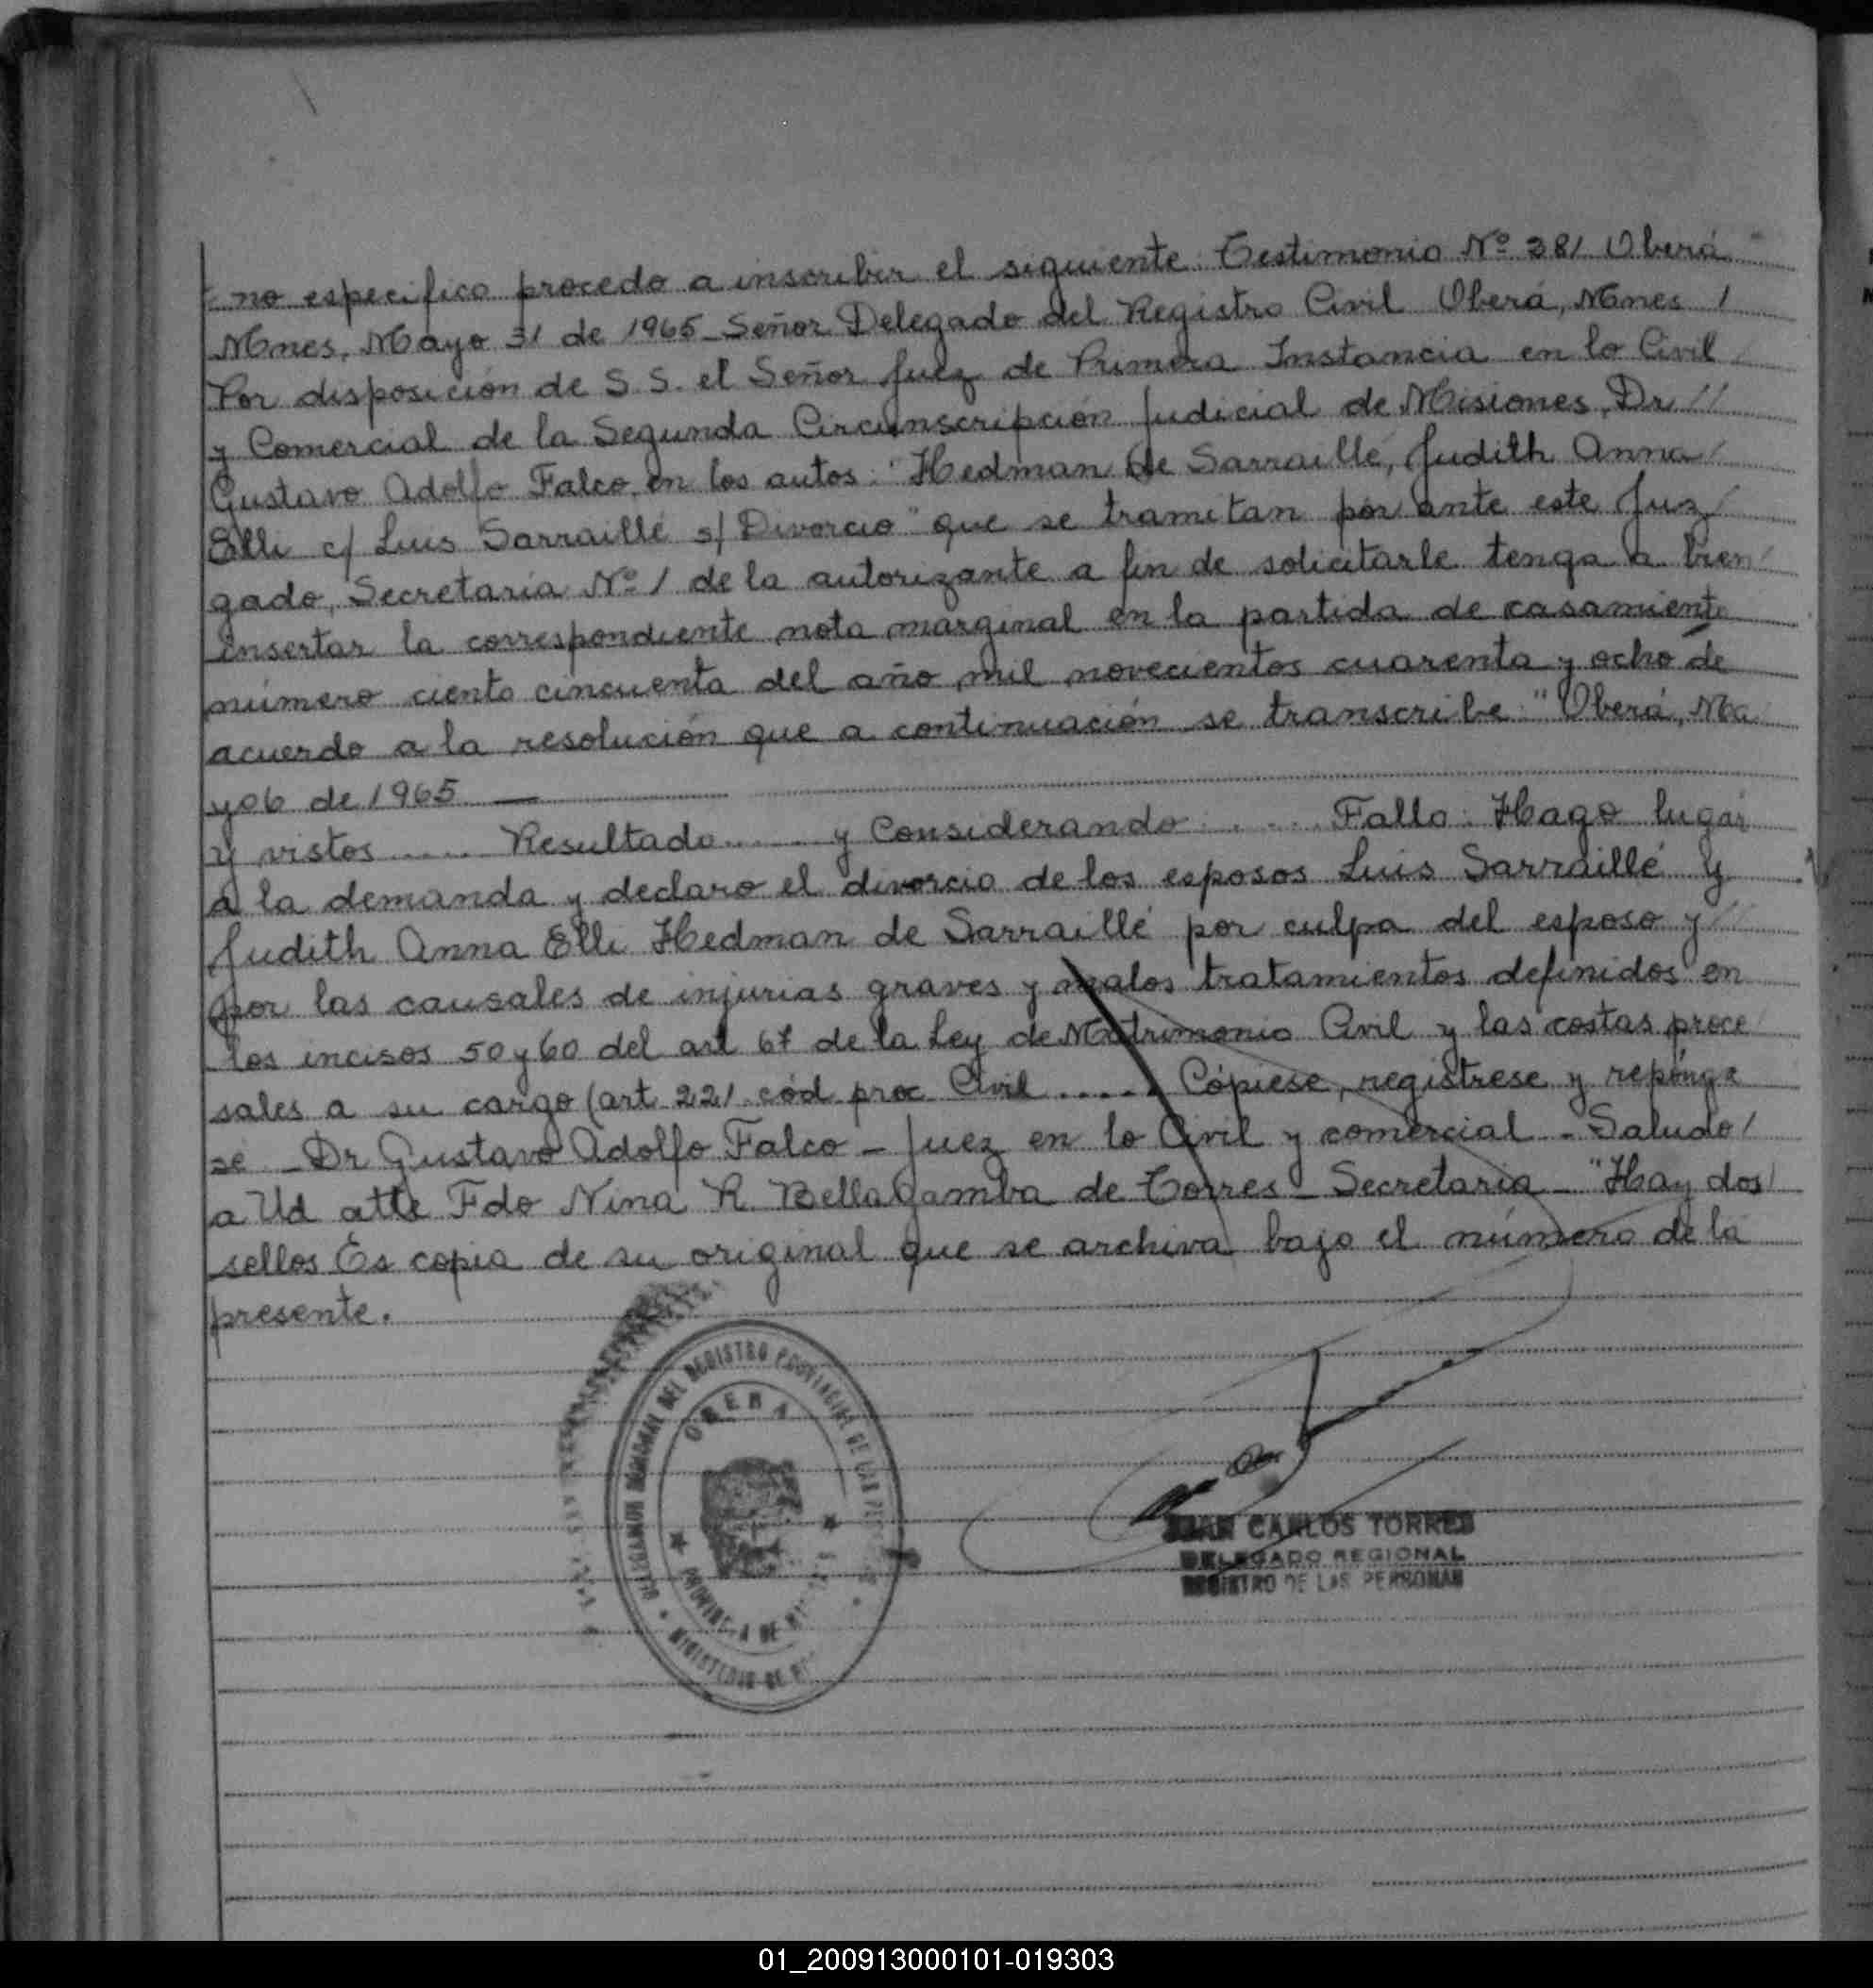 no especifico procedo a inscribir el siguiente: Testimonio Nº 381 Oberá
Mnes, Mayo 31 de 1965_ Señor Delegado del Registro Civil Oberá, Mnes /
Por disposición de S.S. el Señor Juez de Primera Instancia en lo Civil /
y Comercial de la Segunda Circunscripción Judicial de Misiones, Dr //
Gustavo Adolfo Falco, en los autos: "Hedman de Sarraillé, Judith Anna /
Elli c/ Luis Sarraillé s/ Divorcio" que se tramitan por ante este Juz/
gado, Secretaría Nº 1 de la autorizante a fin de solicitarle tenga a bien /
insertar la correspondiente nota marginal en la partida de casamiento
número ciento cincuenta del año mil novecientos cuarenta y ocho de
acuerdo a la resolución que a continuación se transcribe: "Oberá, Ma
yo 6 de 1965 —
y vistos .... Resultado ..... y Considerando: ..... Fallo: Hago lugar
a la demanda y declaro el divorcio de los esposos Luis Sarraillé y
Judith Anna Elli Hedman de Sarraillé por culpa del esposo y //
por las causales de injurias graves y malos tratamientos definidos en
los incisos 50 y 60 del art 67 de la Ley de Matrimonio Civil y las costas proce/
sales a su cargo (art. 221 cód proc Civil ..... Cópiese, registrese y repónga
se _ Dr Gustavo Adolfo Falco _ Juez en lo Civil y comercial _ Saludo /
a Ud atte Fdo Nina R. Bellagamba de Torres _ Secretaria _ "Hay dos /
sellos Es copia de su original que se archiva bajo el número de la
presente.
DELEGACION REGIONAL DEL REGISTRO PROVINCIAL DE LAS
OBERA
PROVINCIA DE
MINISTERIO DE
JUAN CARLOS TORRES
DELEGADO REGIONAL
REGISTRO DE LAS PERSONAS
01_200913000101-019303